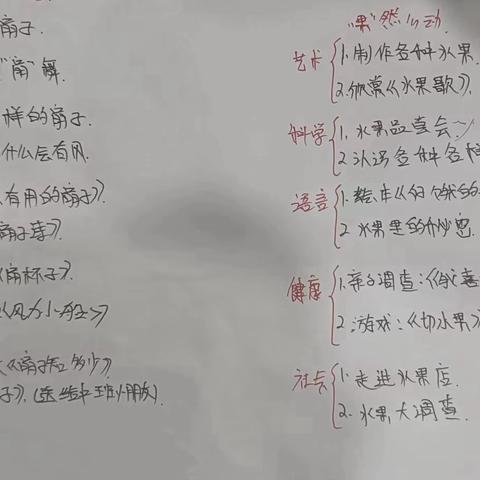 扇子.
"扇"舞.
样的扇子.
什么会有风.
有用的扇子》.
扇子菇》.
《扇杯子》.
《风力小船》
《扇子知多少》
子》.(送给中班小朋友)
"果"然心动
艺术
1.制作各种水果.
2.欣赏《水果歌》.
科学
1.水果品尝会
2.认识各种各样
语言
1.绘本《好饿的
2.水果里的奥秘.
健康
1.亲子调查:《我喜
2.游戏:《切水果》
社会
1.走进水果店.
2.水果大调查.